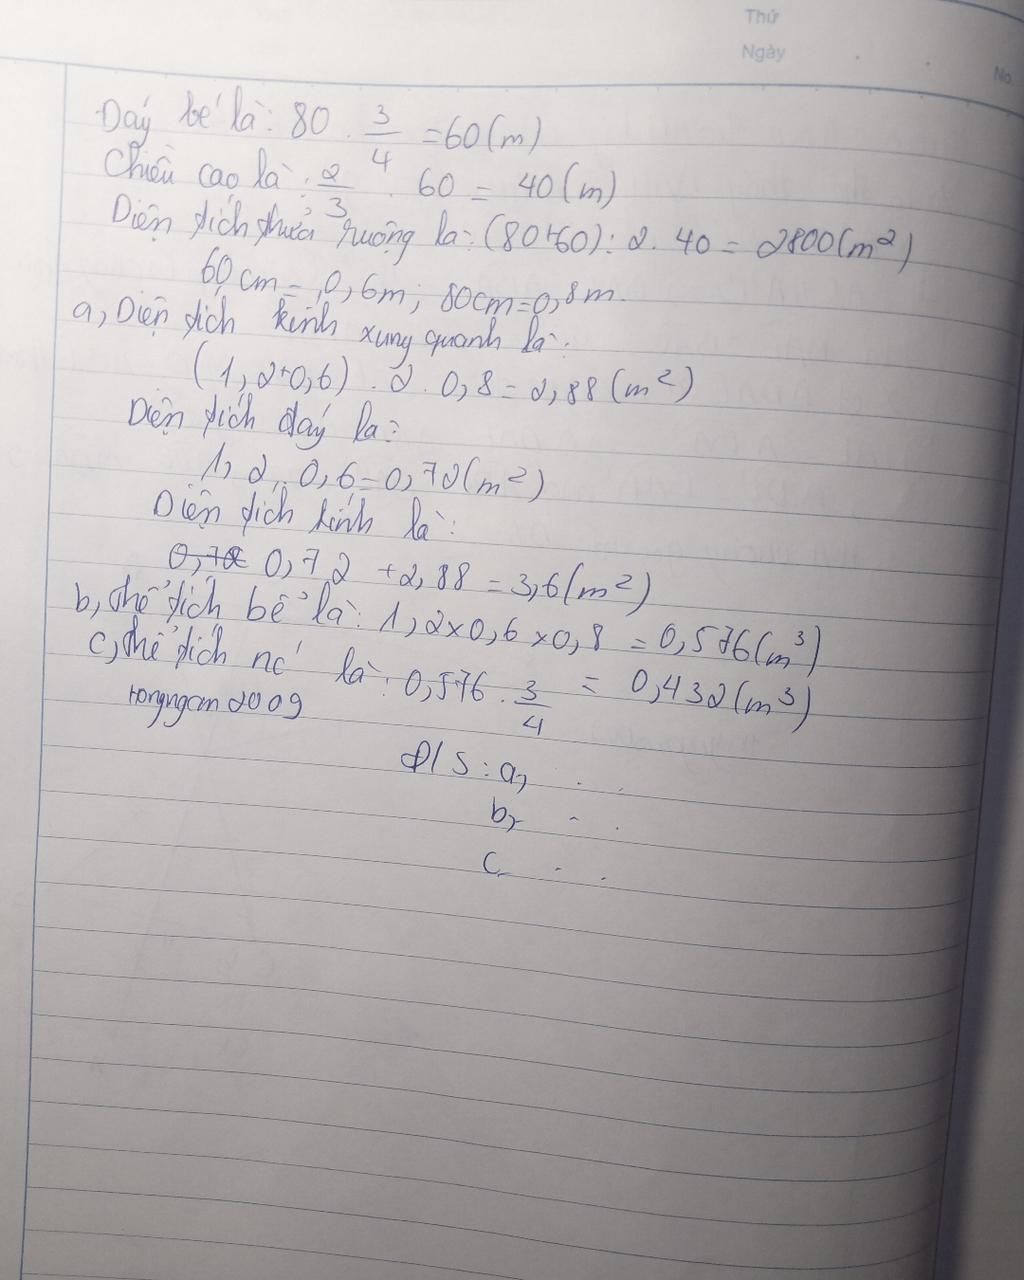 Thứ
Ngày
No
Đáy bé là: 80 . 3/4 = 60 (m)
Chiều cao là : 2/3 . 60 = 40 (m)
Diện tích thửa ruộng là: (80+60) : 2 . 40 = 2800 (m²)
60 cm = 0,6m ; 80cm = 0,8m.
a, Diện tích kính xung quanh là:
(1,2+0,6) . 2 . 0,8 = 2,88 (m²)
Diện tích đáy là:
1,2 . 0,6 = 0,72 (m²)
Diện tích kính là:
0,72 + 2,88 = 3,6 (m²)
b, thể tích bể là: 1,2 x 0,6 x 0,8 = 0,576 (m³)
c, thể tích nc' là: 0,576 . 3/4 = 0,432 (m³)
hongngan2009
Đ/S : a, . .
b, - .
c, . .